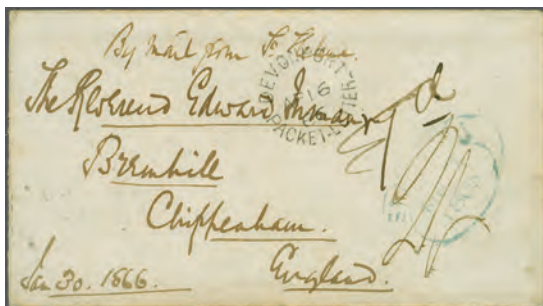 By Mail from St Helena.
DEVONPORT
MR 16
PACKET-LETTER
The Reverend Edward
Bremhill
Chippenham.
England.
Jan 30. 1866.